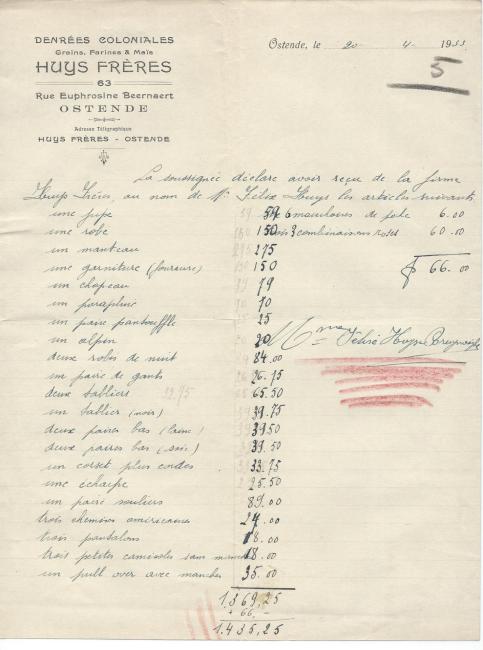 DENRÉES COLONIALES
Grains, Farines & Maïs
HUYS FRÈRES
63
Rue Euphrosine Beernaert
OSTENDE
Adresse Télégraphique
HUYS FRÈRES - OSTENDE
Ostende, le 20 4 1933
5
La soussignée déclare avoir reçu de la firme
Huys Frères, au nom de Mr Félix Huys les articles suivants
une jupe 59 6 mouchoirs de poche 6.00
une robe 150 3 combinaisons roses 60.00
un manteau 275
une garniture (fourrure) 150 66.00
un chapeau 79
un parapluie 70
un paire pantouffle 25
un alpin 20
Mme Félix Huys
deux robes de nuit 84.00
un paire de gants 26.75
deux tabliers 32.75 65.50
un tablier (noir) 39.75
deux paires bas (laine) 39.50
deux paires bas (soie) 39.50
un corset plus cordes 33.75
une écharpe 25.50
un paire souliers 89.00
trois chemises américaines 24.00
trois pantalons 18.00
trois petites camisoles sans manches 18.00
un pull over avec manches 35.00
1.369,25
+ 66.-
1.435,25